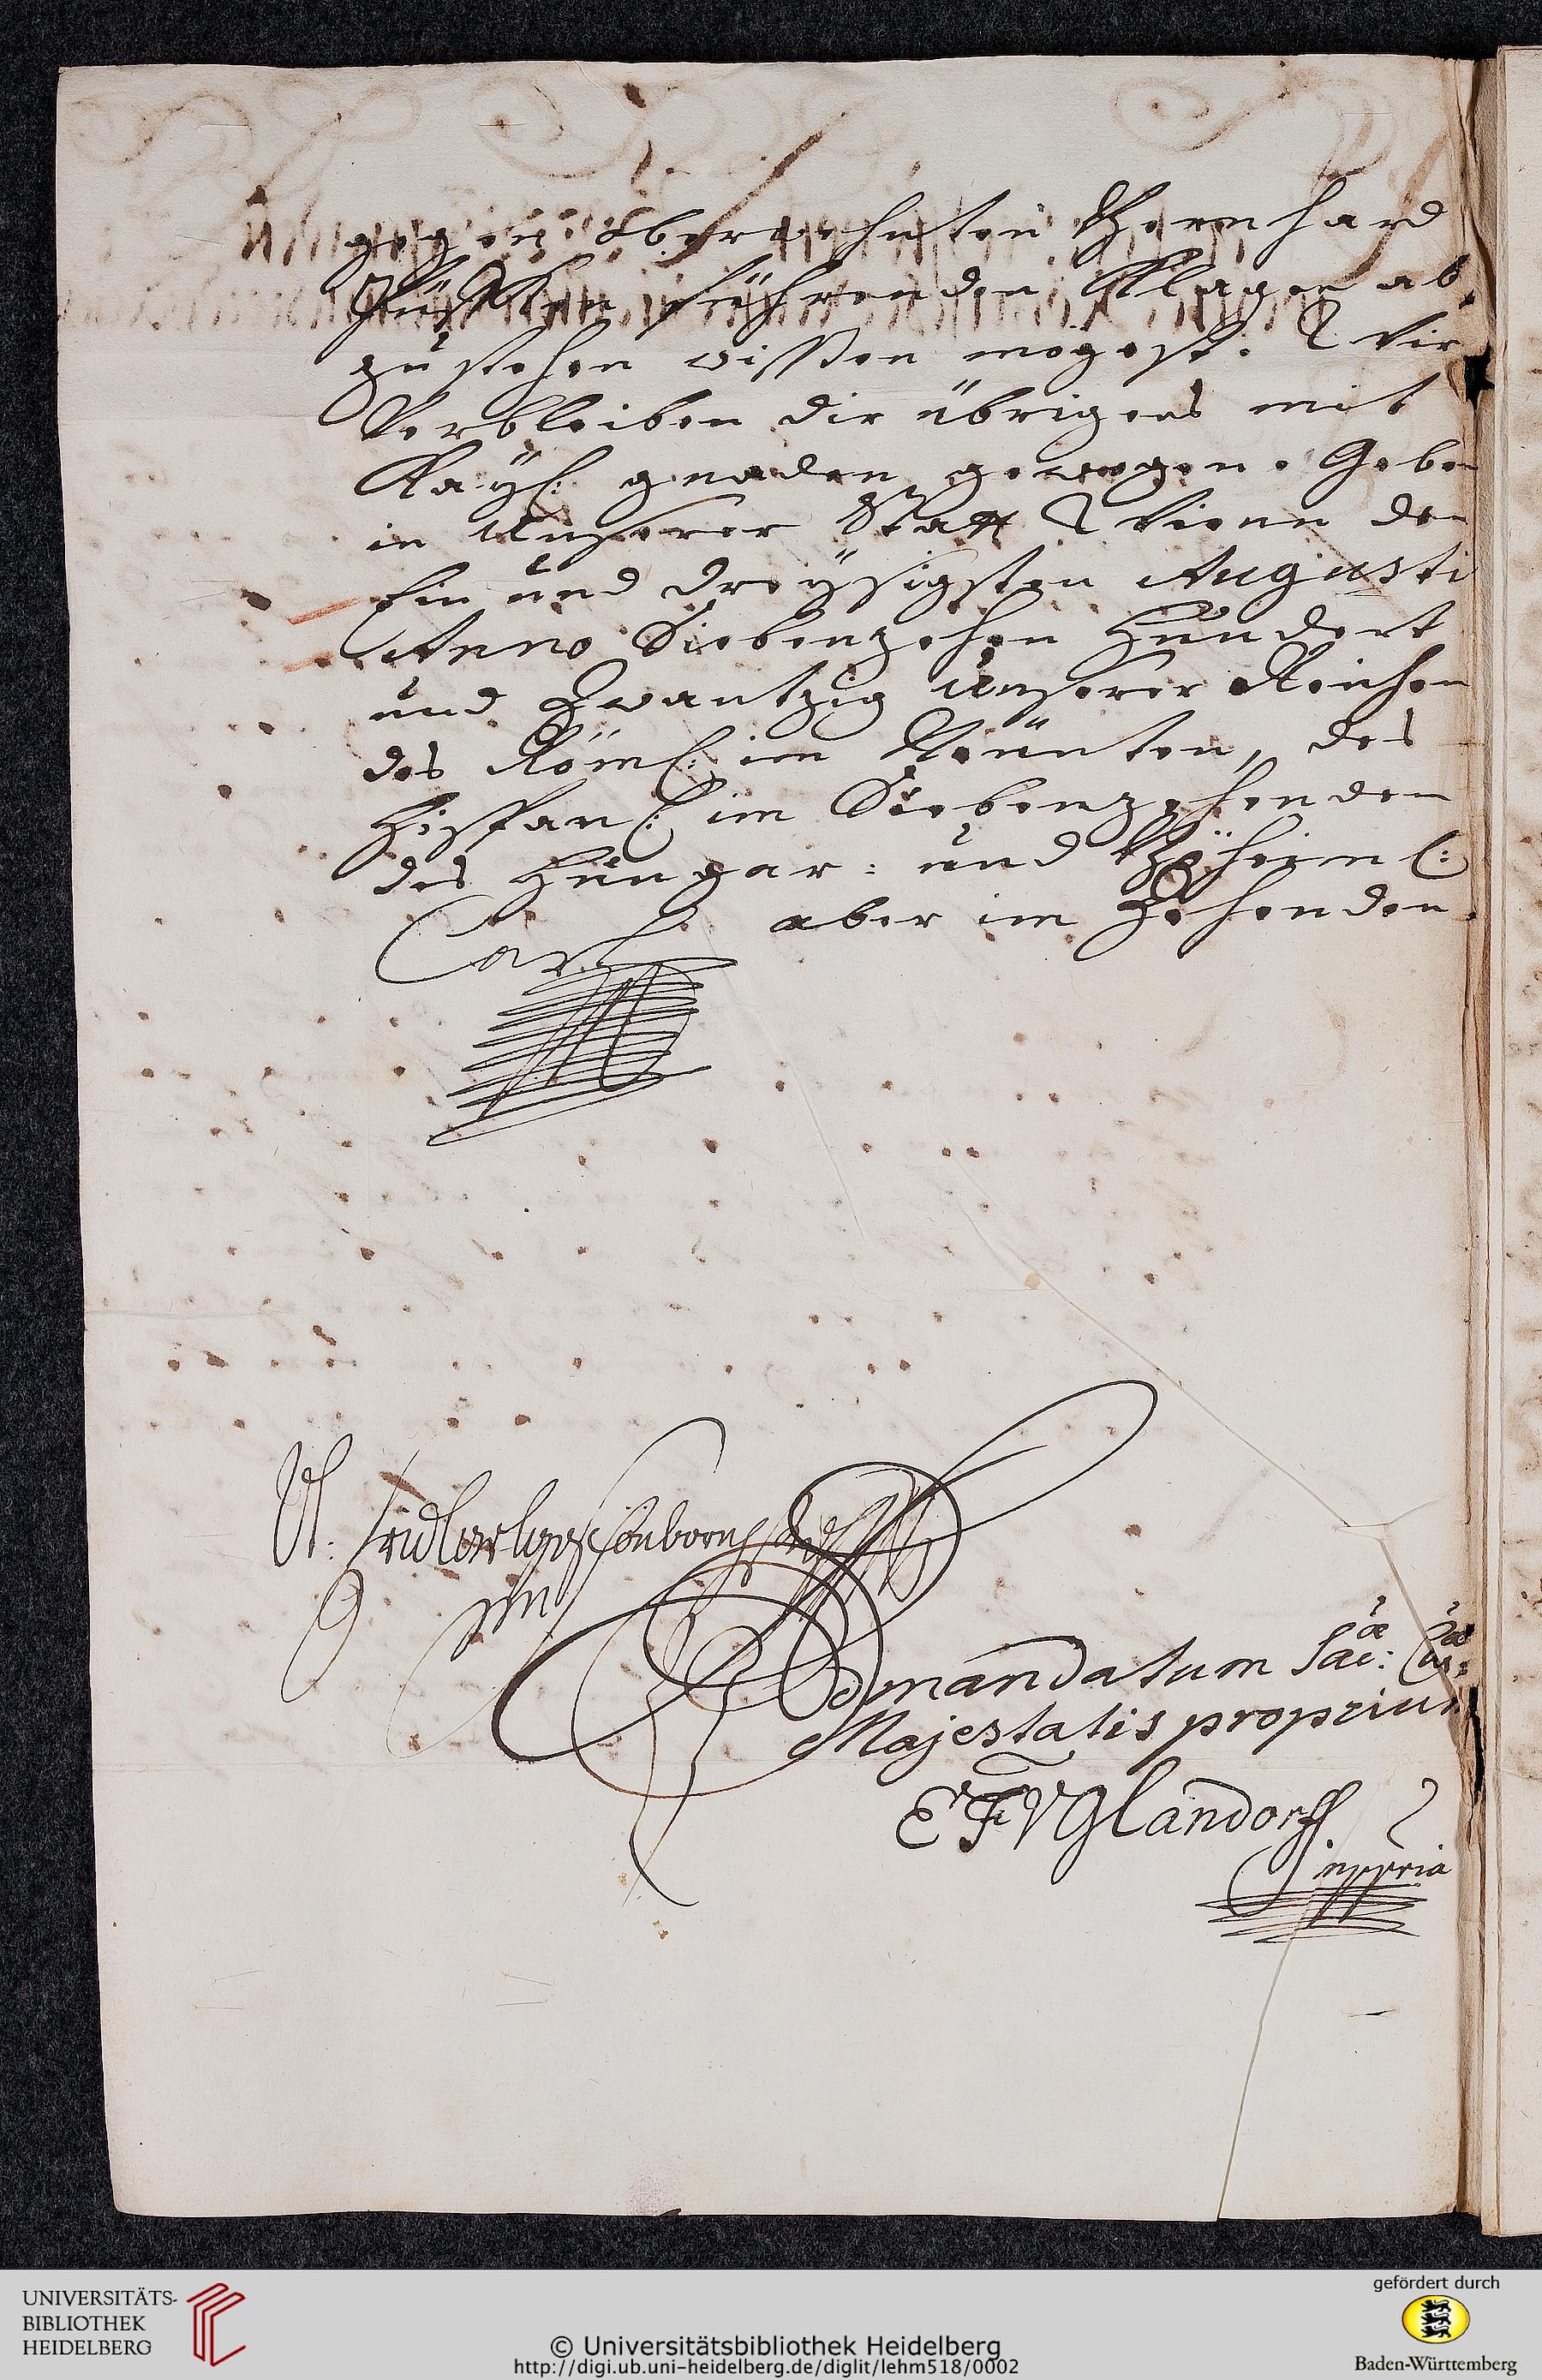 gegen Oberwehnten Bernhard
führenden Klagen ab,
zustehen wißen mögest. Wir
Verbleiben dir übrigens mit
Kayl: gnaden gewogen. Geben
in Unserer Statt Wienn den
Ein und dreysigsten Augusti
Anno Siebenzehen Hundert
und Zwantzig Unserer Reichen
des Röml: im Neünten, des
Hispanl: im Siebenzehenden
des Hungar: und Böheiml:
aber im Zehenden.
Carl
Vt: Frid Carl Schönborn
mp
Ad mandatum Sac: Caes:
Majestatis proprium
EFVGlandorff
mppria
UNIVERSITÄTS-
BIBLIOTHEK
HEIDELBERG
© Universitätsbibliothek Heidelberg
http://digi.ub.uni-heidelberg.de/diglit/lehm518/0002
gefördert durch
Baden-Württemberg